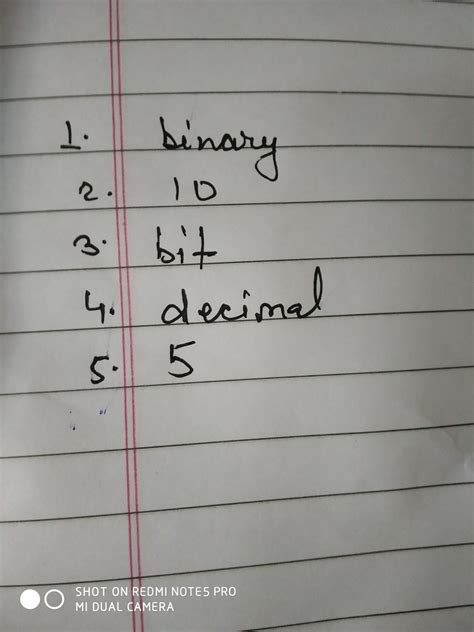 1. binary
2. 10
3. bit
4. decimal
5. 5
SHOT ON REDMI NOTE5 PRO
MI DUAL CAMERA